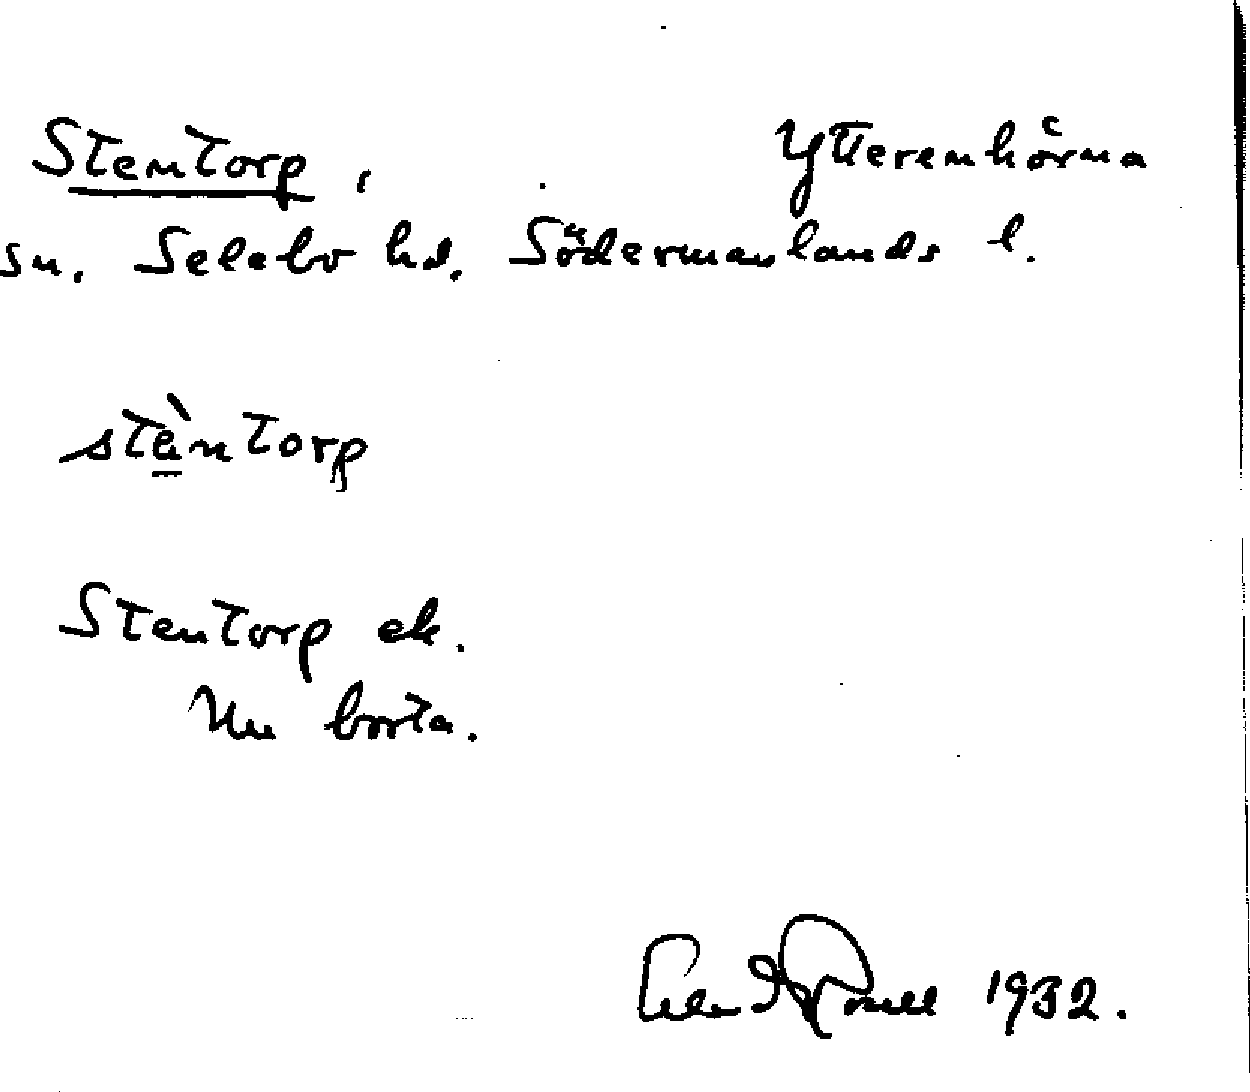 Stentorp, Ytterenhörna
sn. Selebo hd. Södermanlands l.
stèntorp
Stentorp ek.
Nu borta.
1932.